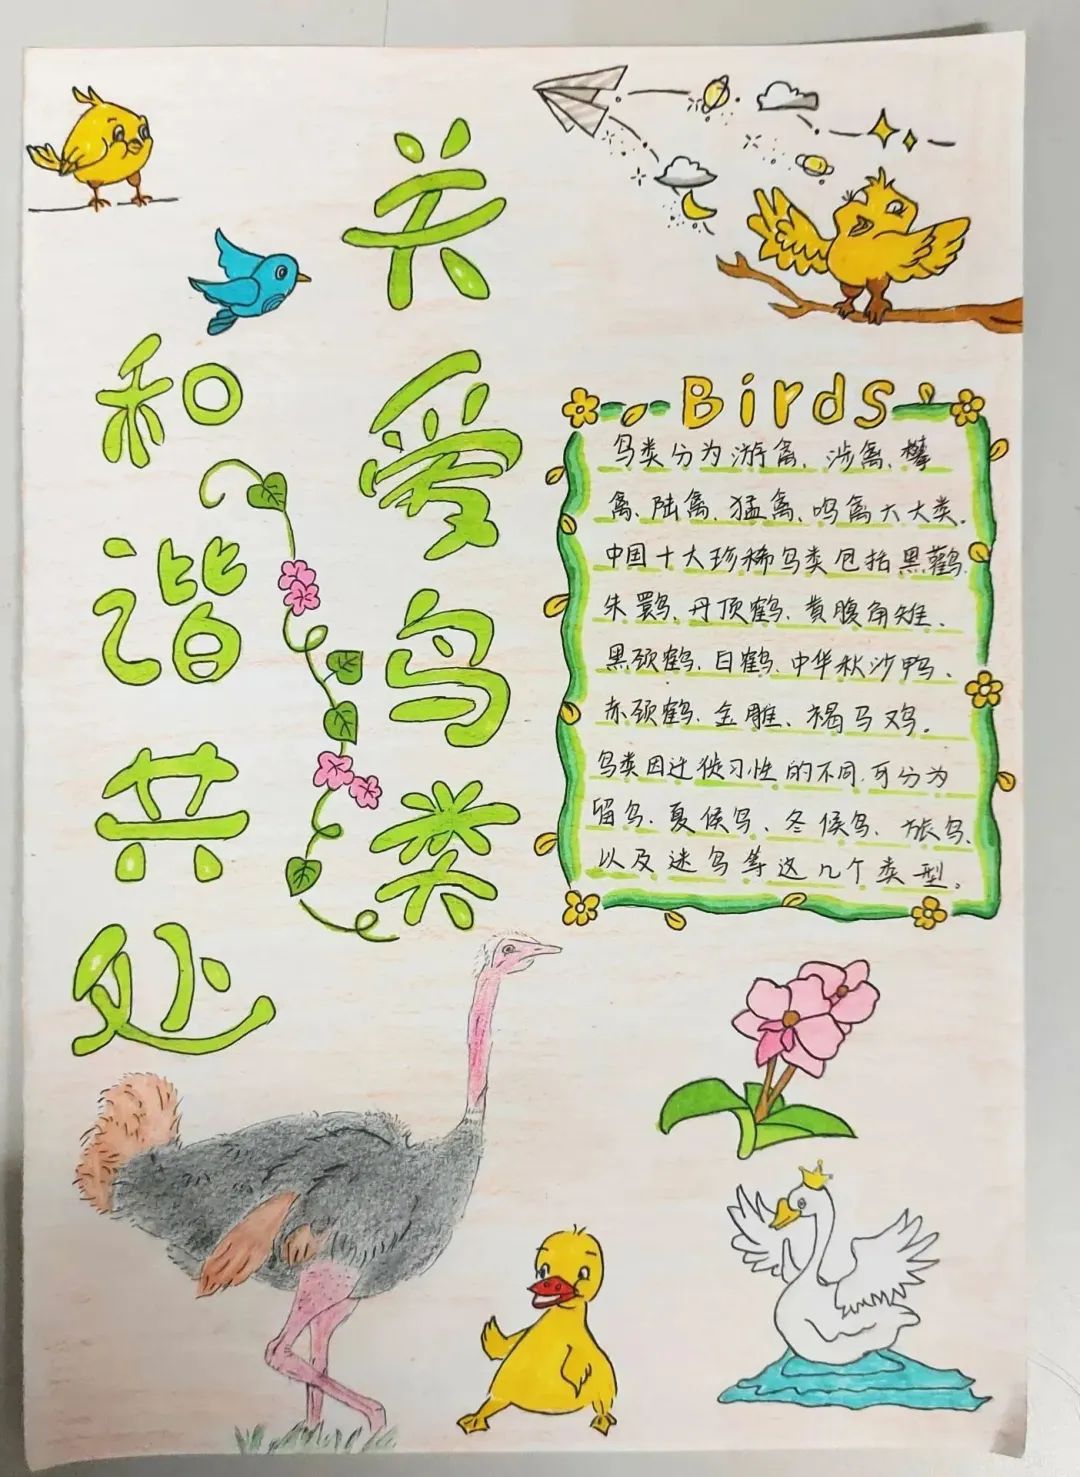 关爱鸟类
和谐共处
Birds
鸟类分为游禽、涉禽、攀
禽、陆禽、猛禽、鸣禽六大类。
中国十大珍稀鸟类包括黑鹳、
朱鹮、丹顶鹤、黄腹角雉、
黑颈鹤、白鹤、中华秋沙鸭、
赤颈鹤、金雕、褐马鸡。
鸟类因迁徙习性的不同,可分为
留鸟、夏候鸟、冬候鸟、旅鸟、
以及迷鸟等这几个类型。